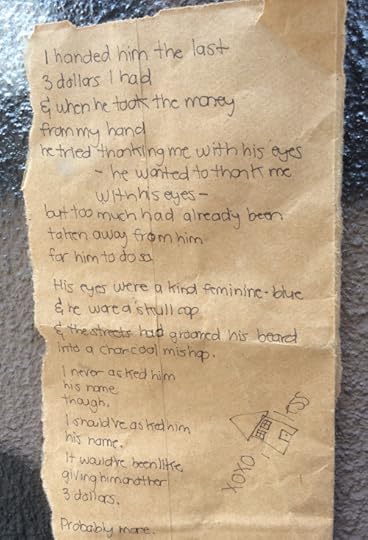 I handed him the last
3 dollars I had
& when he took the money
from my hand
he tried thanking me with his eyes
- he wanted to thank me
with his eyes -
but too much had already been
taken away from him
for him to do so.
His eyes were a kind feminine-blue
& he wore a skull cap
& the streets had groomed his beard
into a charcoal mishap.
I never asked him
his name
though.
I should've asked him
his name.
It would've been like
giving him another
3 dollars.
Probably more.
XOXO